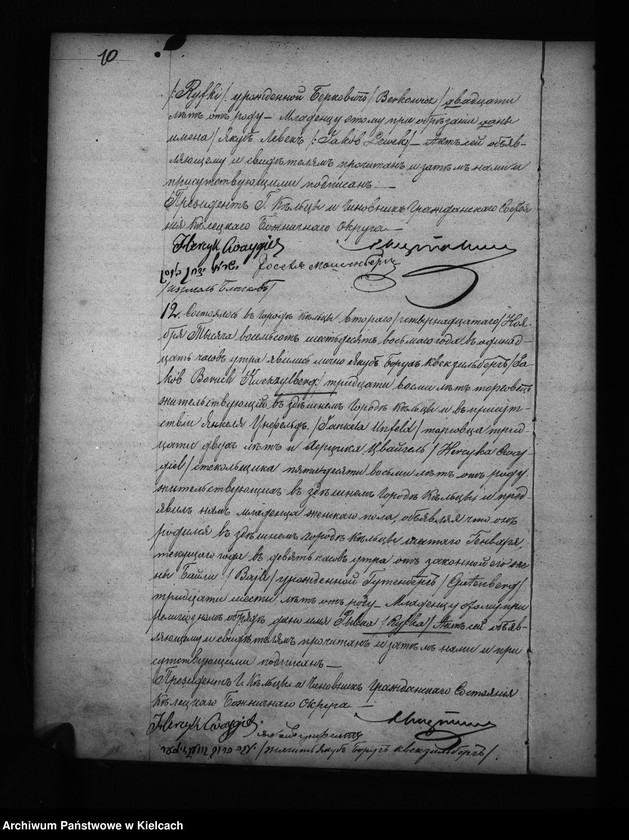 10
/: Ryfki/ урожденной Берковичъ / Berkowicz / двадцати
лѣтъ отъ роду — Младенцу этому при обрѣзаніи даны
имена / Якубъ Левекъ /: Jakob Lewek/ — Актъ сей объяв-
ляющему и свидѣтелямъ прочитанъ и затѣмъ нами и
присутствующими подписанъ. —
Президентъ Г. Кѣльцы и Чиновникъ Гражданскаго Состоя-
нія Кѣлецкаго Божничнаго Округа —
Henryk
12. Состоялось въ городѣ Кѣльцы втораго / четырнадцатаго / Ноя-
бря Тысяча восемьсотъ шестьдесятъ восьмаго года въ одинад-
цать часовъ утра явились лично Якубъ Борухъ Квекзильбергъ / Ja-
kób Boruch Kwekzylberg / тридцати восьми лѣтъ торговецъ
жительствующій въ здѣшнемъ городѣ Кѣльцы и въ присут-
ствіи Янкеля Унфельда / Jankela Unfeld / торговца трид-
цати двухъ лѣтъ и Герцыка Цвайгель / Hercyka Cwaj-
giel / стекольщика пятьдесяти восьми лѣтъ отъ роду
жительствующихъ въ здѣшнемъ городѣ Кѣльцы и пред-
явилъ намъ младенца женскаго пола, объявляя что онъ
родился въ здѣшнемъ городѣ Кѣльцы шестаго Января
текущаго года въ девять часовъ утра отъ законной его же-
ны Байли / Bajli / урожденной Гутенбергъ / Gutenberg /
тридцати шести лѣтъ отъ роду — Младенцу этому при
религіозномъ обрядѣ дано имя Рывка / Ryfka / Актъ сей объяв-
ляющему и свидѣтелямъ прочитанъ и затѣмъ нами и при
сутствующими подписанъ —
Президентъ Г. Кѣльцы и Чиновникъ Гражданскаго Состоянія
Кѣлецкаго Божничнаго Округа —
Henryk
Якубъ Борухъ Квекзильбергъ /
Archiwum Państwowe w Kielcach